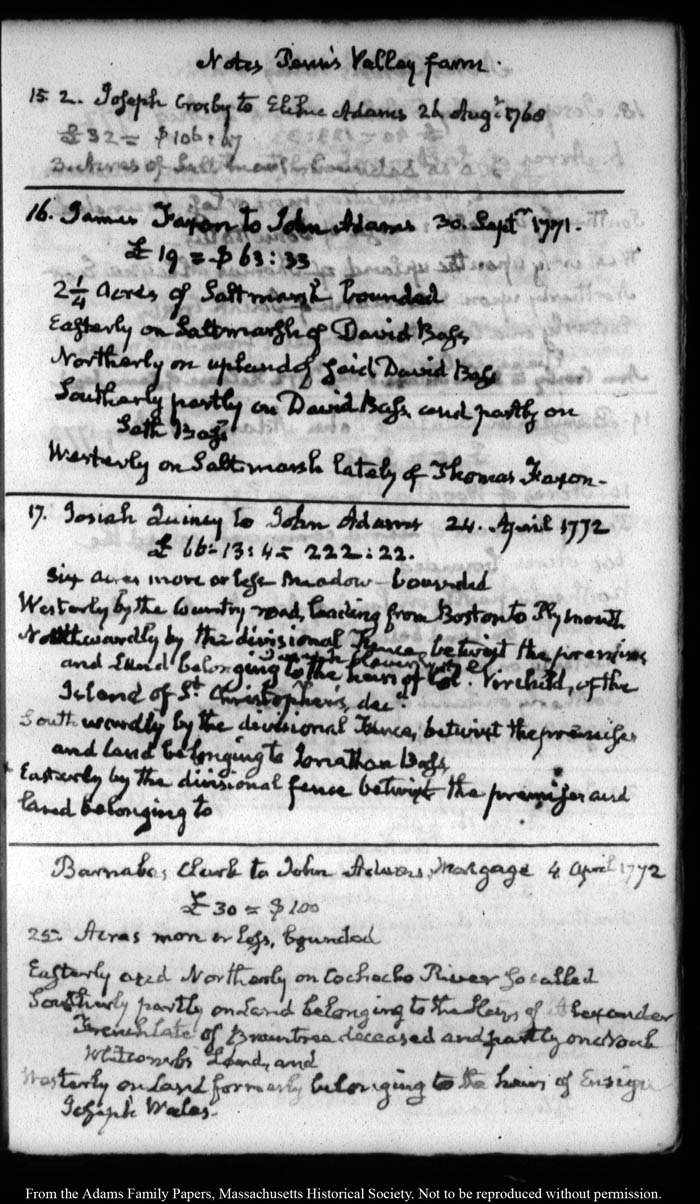 Notes Penn's Valley farm.
15. 2. Joseph Crosby to Elihu Adams 26 Augt. 1768
£32 = $106:67
3 Acres of Salt marsh bounded
16. James Faxon to John Adams 30. Septr. 1771.
£19 = $63:33
2 1/4 Acres of Saltmarsh bounded
Easterly on Saltmarsh of David Bass
Northerly on upland of said David Bass
Southerly partly on David Bass, and partly on
Seth Bass
Westerly on Saltmarsh lately of Thomas Faxon.
17. Josiah Quincy to John Adams 24. April 1772
£66:13:4 = 222:22.
Six acres more or less Meadow bounded
Westerly by the Country road, leading from Boston to Plymouth
Northwardly by the divisional Fence betwixt the premises
and Land belonging to the heirs of Col. Joseph Virchild, of the
Island of St. Christopher's, decd.
Southwardly by the divisional Fence, betwixt the premises
and land belonging to Jonathan Bass
Easterly by the divisional fence betwixt the premises and
land belonging to
Barnabas Clark to John Adams, Morgage 4 April 1772
£30 = $100
25 Acres more or less, bounded
Easterly and Northerly on Cochecho River so called
Southerly partly on Land belonging to the Heirs of Alexander
French late of Braintree deceased and partly on
Whitcombs Land, and
Westerly on Land formerly belonging to the heirs of Ensign
Joseph Wales.
From the Adams Family Papers, Massachusetts Historical Society. Not to be reproduced without permission.